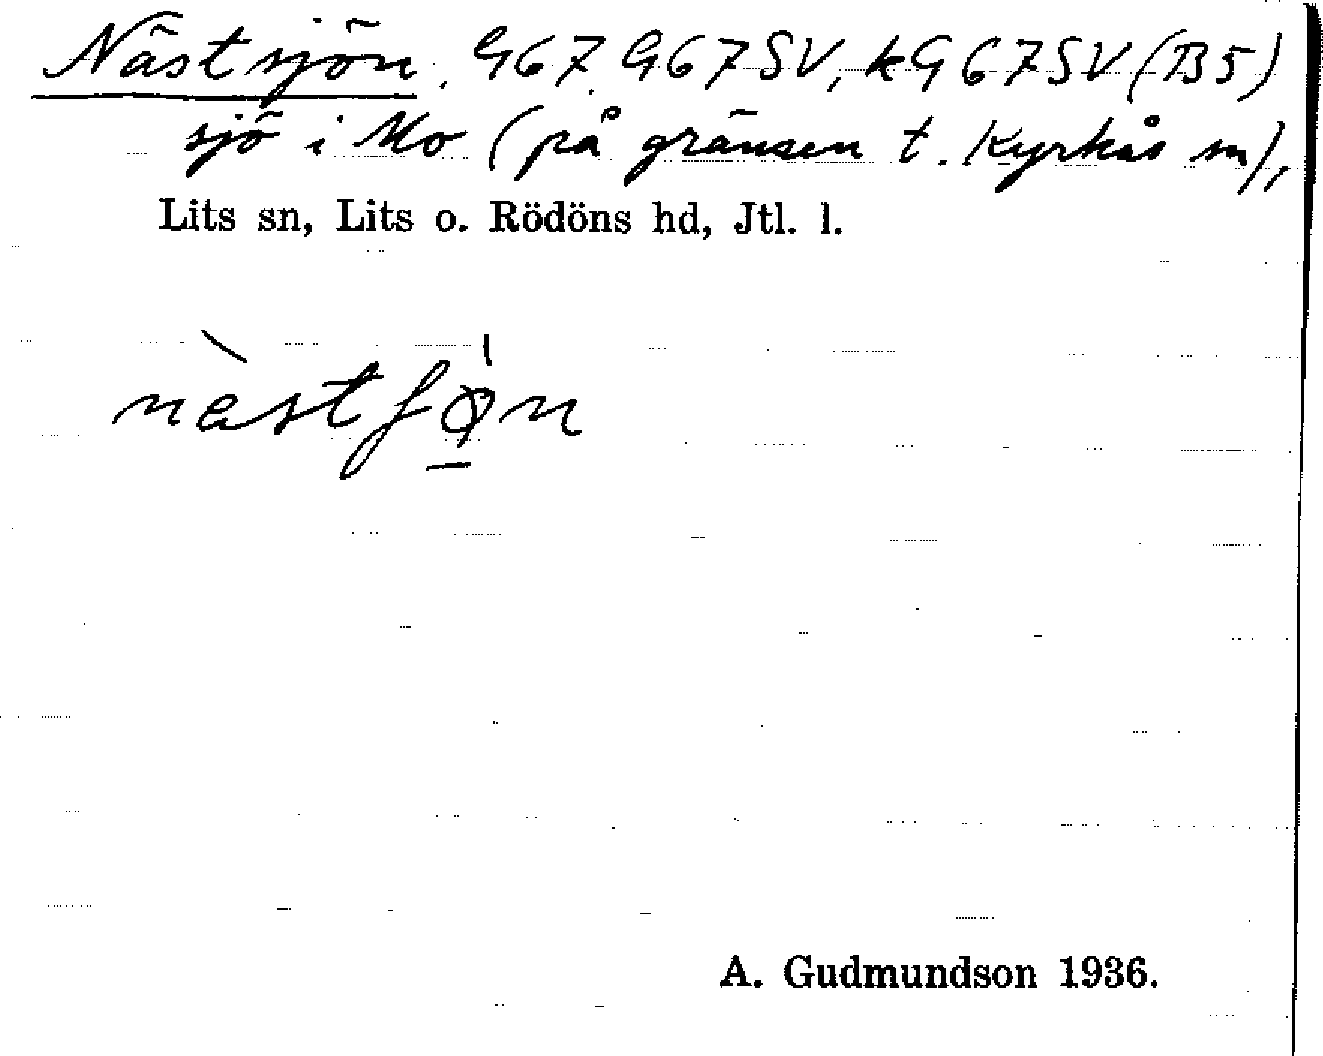 Nästsjön. G67. G67SV, kG67SV (B5)
sjö i Mo (på gränsen t. Kyrkås sn),
Lits sn, Lits o. Rödöns hd, Jtl. l.
A. Gudmundson 1936.